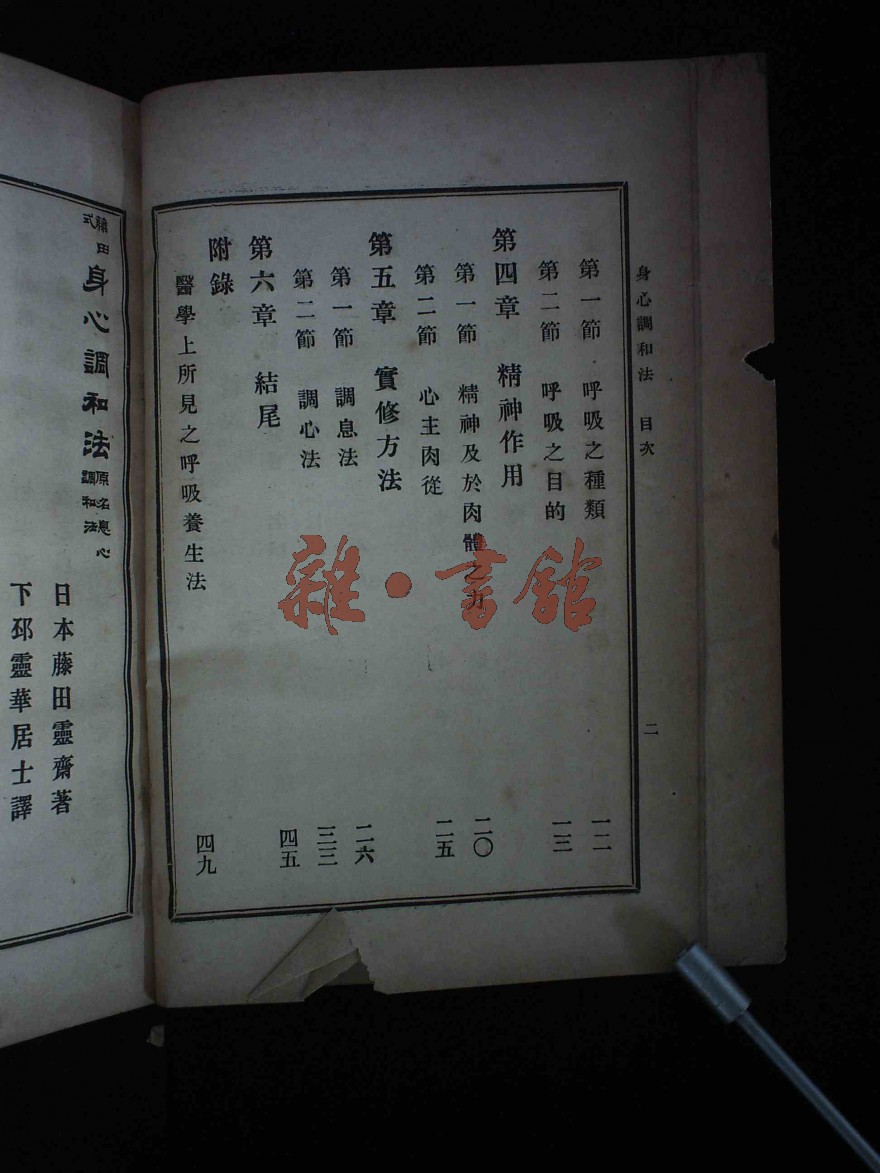 身心調和法 目次
二
第一節 呼吸之種類 一二
第二節 呼吸之目的 一三
第四章 精神作用
第一節 精神及於肉體之力 二〇
第二節 心主肉從 二五
第五章 實修方法
第一節 調息法 二六
第二節 調心法 三三
第六章 結尾 四五
附錄
醫學上所見之呼吸養生法 四九
藤田式 身心調和法 原名息心調和法
日本藤田靈齋著
下邳靈華居士譯
雜·書館